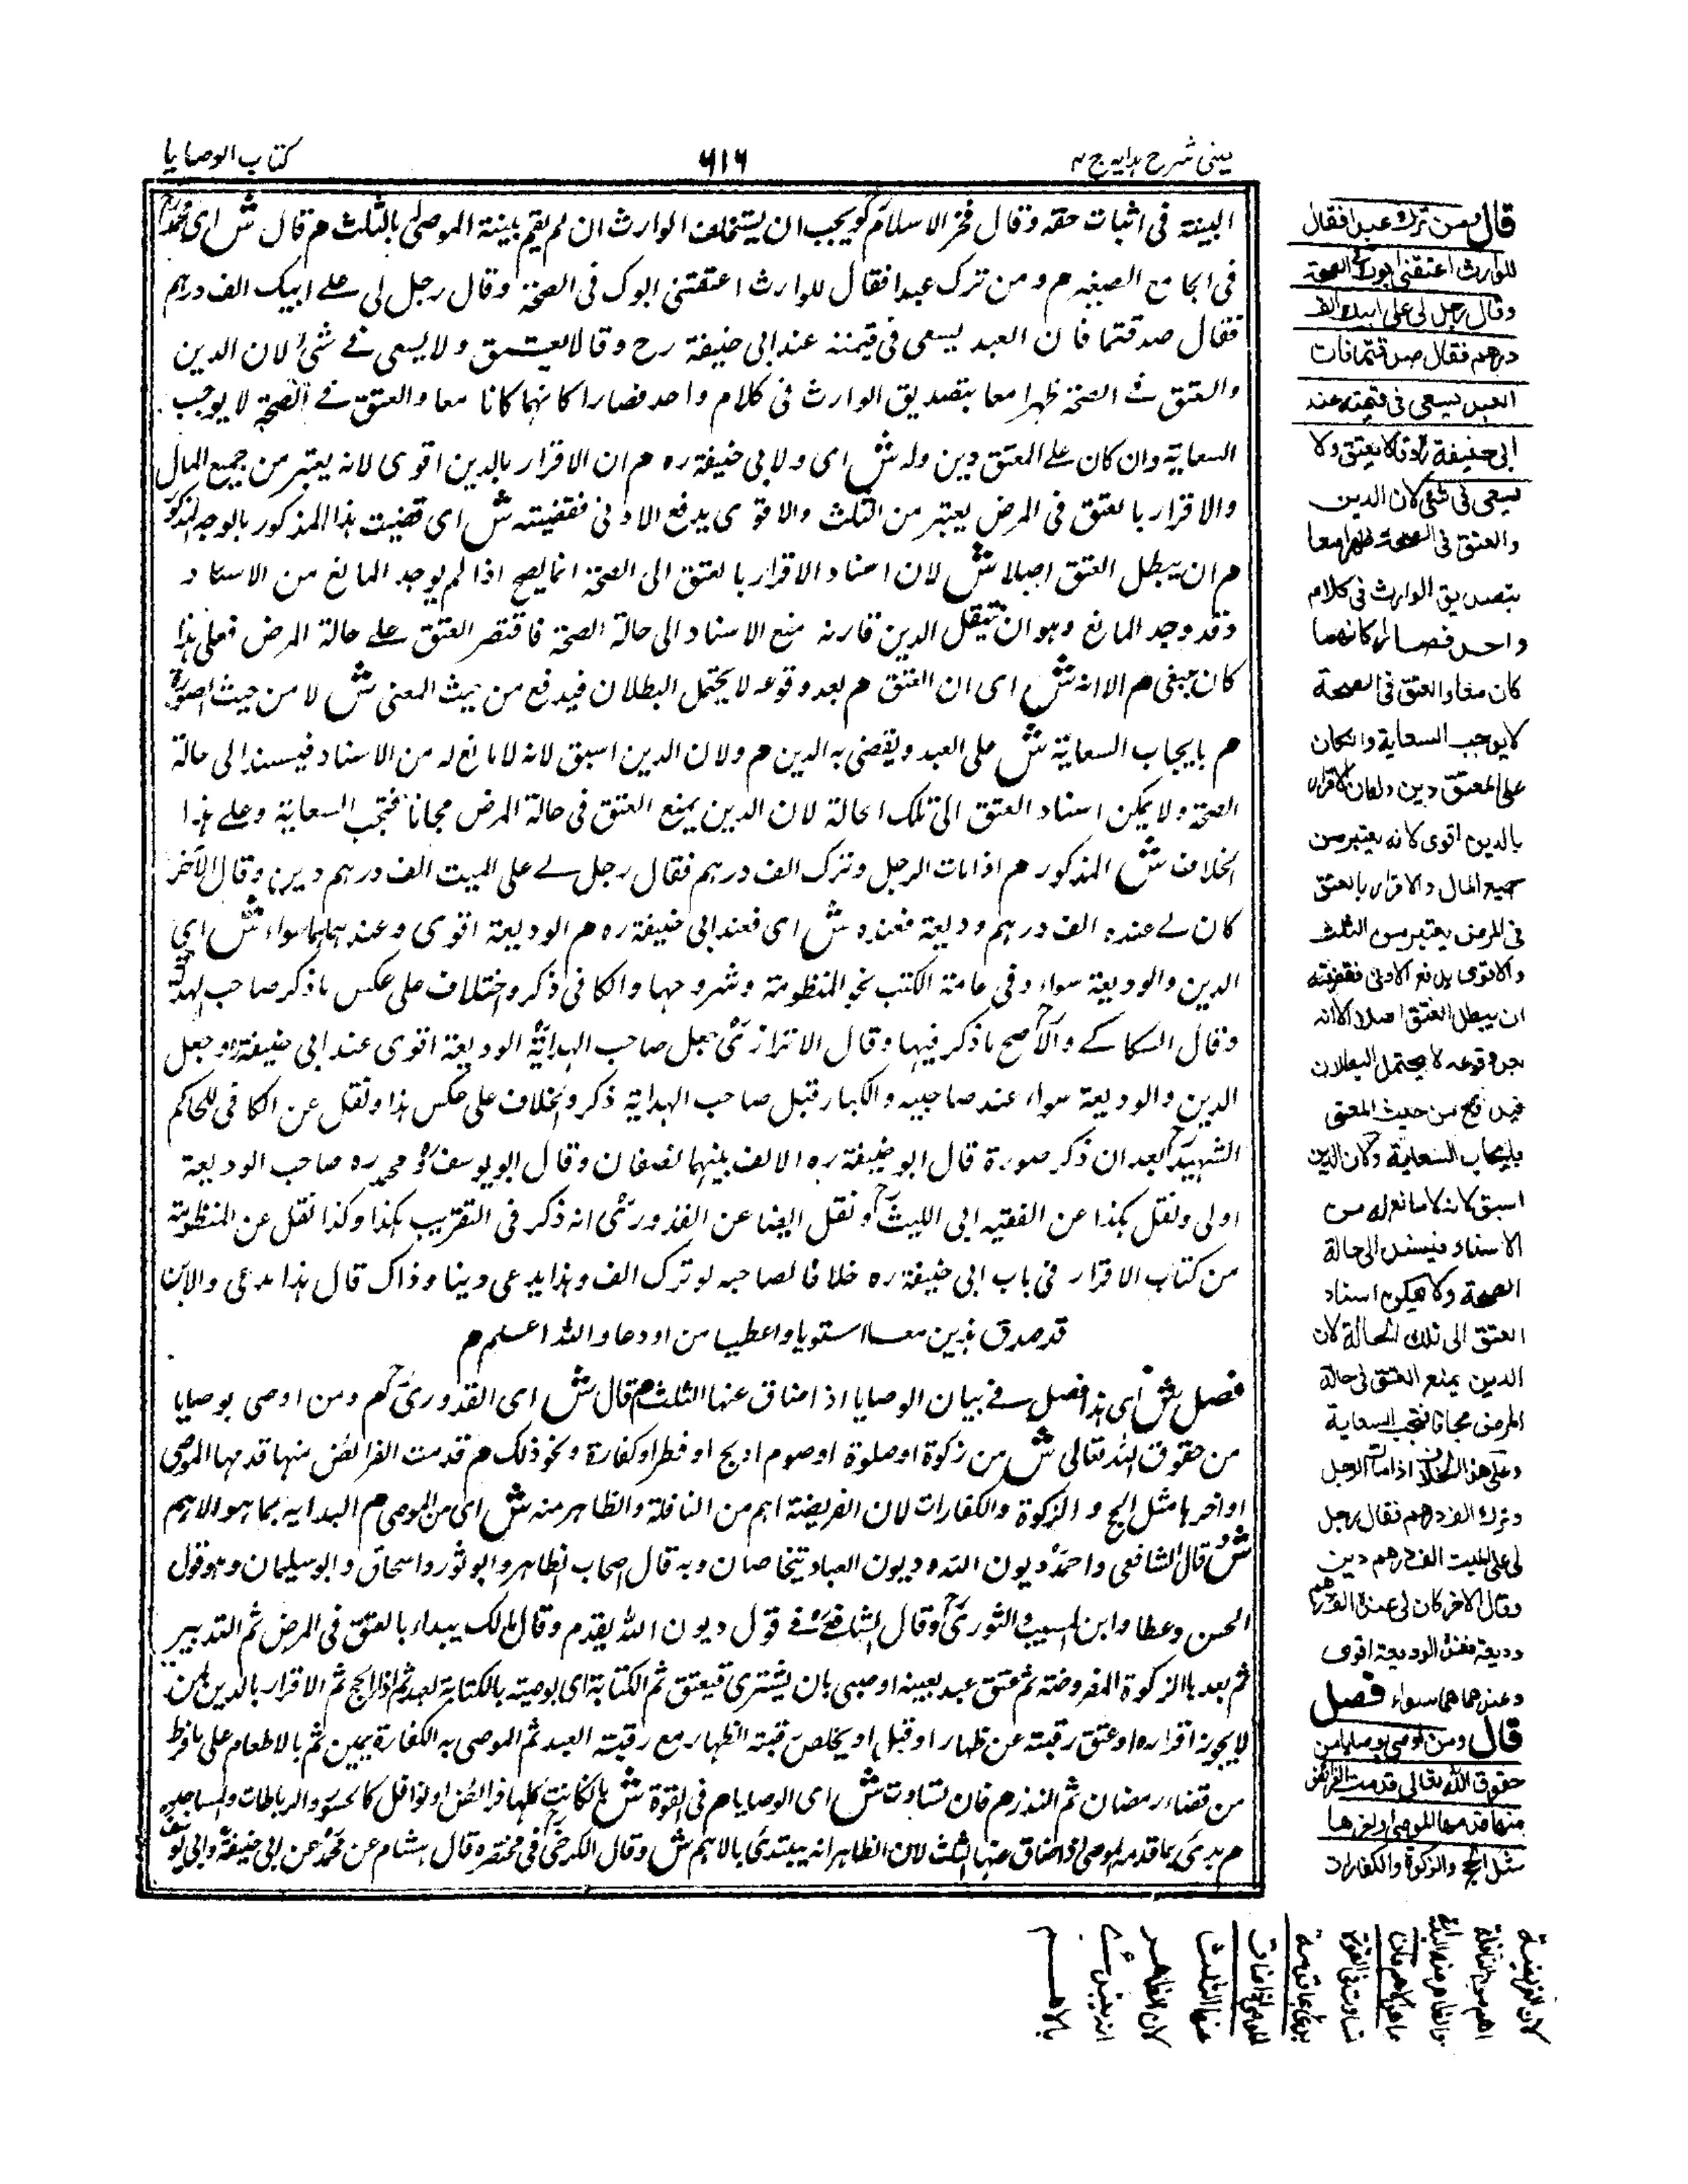 عینی شرح ہدایہ ج ۴
۶۱۶
کتاب الوصایا
البینة فی اثبات حقه وقال فخر الاسلام ویجب ان یستحلف الوارث ان لم یقم بینة الموصی بالثلث م قال ش ای محمد
فی الجامع الصغیر م ومن ترک عبدا فقال للوارث اعتقنی ابوک فی الصحة وقال رجل لی علے ابیک الف درہم
فقال صدقتما فان العبد یسعی فی قیمته عند ابی حنیفة رح وقالا یعتق ولا یسعی فے شئ لان الدین
والعتق فے الصحة ظہرا معا بتصدیق الوارث فی کلام واحد فصارا کانہما کانا معا والعتق فے الصحة لا یوجب
السعایة وان کان علے المعتق دین وله ش ای ولابی حنیفة ره م ان الاقرار بالدین اقوی لانه یعتبر من جمیع المال
والاقرار بالعتق فی المرض یعتبر من الثلث والاقوی یدفع الادنی فقضیته ش ای قضیت ہذا المذکور بالوجه المذکور
م ان یبطل العتق اصلا ش لان اسناد الاقرار بالعتق الی الصحة انما یصح اذا لم یوجد المانع من الاسناد
وقد وجد المانع وہو ان الدین قارنه منع الاسناد الی حالة الصحة فاقتصر العتق علے حالة المرض فعلی ہذا
کان ینبغی م الا انه ش ای ان العتق م بعد وقوعه لا یحتمل البطلان فیدفع من حیث المعنی ش لا من حیث الصورة
م بایجاب السعایة ش علی العبد ویقضی به الدین م ولان الدین اسبق لانه لا مانع له من الاسناد فیستند الی حالة
الصحة ولا یمکن اسناد العتق الی تلک الحالة لان الدین یمنع العتق فی حالة المرض مجانا فتجب السعایة وعلے ہذا
الخلاف ش المذکور م اذا مات الرجل وترک الف درہم فقال رجل لے علی المیت الف درہم دین وقال الآخر
کان لے عنده الف درہم ودیعة فعنده ش ای فعند ابی حنیفة ره م الودیعة اقوی وعندہما سواء ش ای
الدین والودیعة سواء وفی عامة الکتب نحو المنظومة وشروحہا والکافی ذکر واختلاف علی عکس ما ذکر صاحب الہدایة
وقال السکاکے والاصح ما ذکر فیہا وقال الاترازی جعل صاحب الہدایة الودیعة اقوی عند ابی حنیفة وجعل
الدین والودیعة سواء عند صاحبیه والکبار قبل صاحب الہدایة ذکروا الخلاف علی عکس ہذا ونقل عن الکافی للحاکم
الشہید بعد ان ذکر صورة قال ابو حنیفة ره الالف بینہما نصفان وقال ابو یوسف ومحمد ره صاحب الودیعة
اولی ونقل ہکذا عن الفقیه ابی اللیث ونقل ایضا عن القدوری انه ذکر فی التقریب ہکذا وکذا نقل عن المنظومة
من کتاب الاقرار فی باب ابی حنیفة ره خلافا لصاحبه لو ترک الف وہذا یدعی دینا وذاک قال ہذا مدعی والابن
قد صدق ہذین معا استویا واعطیا من اودعا والله اعلم م
فصل ش ای ہذا فصل فے بیان الوصایا اذا ضاق عنہا الثلث م قال ش ای القدوری م ومن اوصی بوصایا
من حقوق الله تعالی ش من زکوة او صلوة او صوم او حج او فطر او کفارة ونحو ذلک م قدمت الفرائض منہا قدمہا الموصی
او اخرہا مثل الحج والزکوة والکفارات لان الفریضة اہم من النافلة والظاہر منه ش ای من الموصی م البدایه بما ہو الاہم
ش قال الشافعی واحمد دیون الله ودیون العباد یتحاصان وبه قال اصحاب الظاہر وابو ثور واسحاق وابو سلیمان وہو قول
الحسن وعطا وابن المسیب والثوری وقال الشافعی فے قول دیون الله یقدم وقال مالک یبداء بالعتق فی المرض ثم التدبیر
ثم بعدہا الزکوة المفروضة ثم عتق عبد بعینه اوصی بان یشتری فیعتق ثم الکتابة ای بوصیته بالکتابة لعبد ثم الحج ثم الاقرار بالدین لمن
لا یجوز اقراره او عتق رقبة عن ظہار او قتل ثم الموصی به الکفارة یمین ثم بالاطعام علی ما فرط
من قضاء رمضان ثم النذر م فان تساوت ش ای الوصایا م فی القوة ش بان کانت کلہا فرائض او نوافل کالجسور والرباطات والمساجد
م بدئ بما قدمه الموصی اذا ضاق عنہا الثلث لان الظاہر انه یبتدئ بالاہم ش وقال الکرخی فی مختصره قال ہشام عن محمد عن ابی حنیفة وابی یوسف
قال ومن ترک عبدا فقال
للوارث اعتقنی ابوک فی الصحة
وقال رجل لی علی ابیک الف
درهم فقال صدقتما فان
العبد یسعی فی قیمته عند
ابی حنیفة وقالا یعتق ولا
یسعی فی شئ لان الدین
والعتق فی الصحة ظهرا معا
بتصدیق الوارث فی کلام
واحد فصارا کانهما
کانا معا والعتق فی الصحة
لا یوجب السعایة وان کان
علی المعتق دین وله ان الاقرار
بالدین اقوی لانه یعتبر من
جمیع المال والاقرار بالعتق
فی المرض یعتبر من الثلث
والاقوی یدفع الادنی فقضیته
ان یبطل العتق اصلا الا انه
بعد وقوعه لا یحتمل البطلان
فیدفع من حیث المعنی
بایجاب السعایة ولان الدین
اسبق لانه لا مانع له من
الاسناد فیستند الی حالة
الصحة ولا یمکن اسناد
العتق الی تلک الحالة لان
الدین یمنع العتق فی حالة
المرض مجانا فتجب السعایة
وعلی هذا الخلاف اذا مات الرجل
وترک الف درهم فقال رجل
لی علی المیت الف درهم دین
وقال الاخر کان لی عنده الف درهم
ودیعة فعنده الودیعة اقوی
وعندهما هما سواء فصل
قال ومن اوصی بوصایا من
حقوق الله تعالی قدمت الفرائض
منها قدمها الموصی او اخرها
مثل الحج والزکوة والکفارات
لان الفریضة
اهم من النافلة
والظاهر منه البدایة
بما هو الاهم فان
تساوت فی القوة
بدئ بما قدمه
الموصی اذا ضاق
عنها الثلث
لان الظاهر
انه یبتدئ
بالاهم